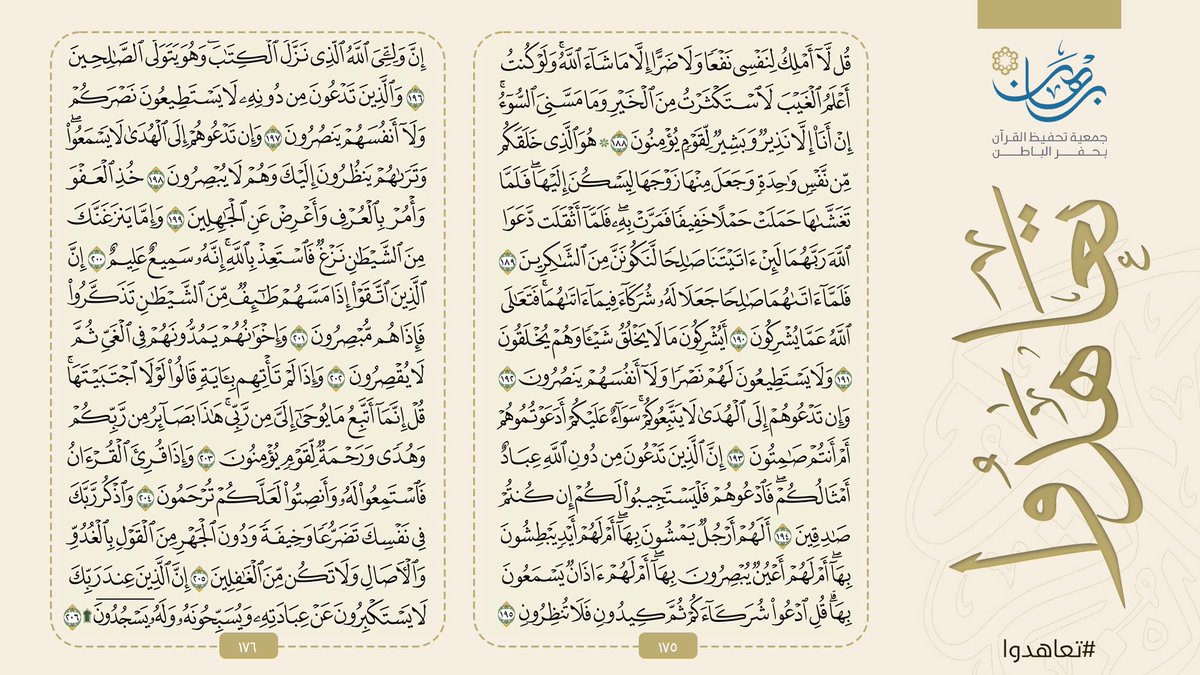 برهان
جمعية تحفيظ القرآن
بحفر الباطن
تعاهدوا
#تعاهدوا
قُل لَّآ أَمۡلِكُ لِنَفۡسِي نَفۡعٗا وَلَا ضَرًّا إِلَّا مَا شَآءَ ٱللَّهُۚ وَلَوۡ كُنتُ
أَعۡلَمُ ٱلۡغَيۡبَ لَٱسۡتَكۡثَرۡتُ مِنَ ٱلۡخَيۡرِ وَمَا مَسَّنِيَ ٱلسُّوٓءُۚ
إِنۡ أَنَا۠ إِلَّا نَذِيرٞ وَبَشِيرٞ لِّقَوۡمٖ يُؤۡمِنُونَ ١٨٨ ۞ هُوَ ٱلَّذِي خَلَقَكُم
مِّن نَّفۡسٖ وَٰحِدَةٖ وَجَعَلَ مِنۡهَا زَوۡجَهَا لِيَسۡكُنَ إِلَيۡهَاۖ فَلَمَّا
تَغَشَّىٰهَا حَمَلَتۡ حَمۡلًا خَفِيفٗا فَمَرَّتۡ بِهِۦۖ فَلَمَّآ أَثۡقَلَت دَّعَوَا
ٱللَّهَ رَبَّهُمَا لَئِنۡ ءَاتَيۡتَنَا صَٰلِحٗا لَّنَكُونَنَّ مِنَ ٱلشَّٰكِرِينَ ١٨٩
فَلَمَّآ ءَاتَىٰهُمَا صَٰلِحٗا جَعَلَا لَهُۥ شُرَكَآءَ فِيمَآ ءَاتَىٰهُمَاۚ فَتَعَٰلَى
ٱللَّهُ عَمَّا يُشۡرِكُونَ ١٩٠ أَيُشۡرِكُونَ مَا لَا يَخۡلُقُ شَيۡـٔٗا وَهُمۡ يُخۡلَقُونَ
١٩١ وَلَا يَسۡتَطِيعُونَ لَهُمۡ نَصۡرٗا وَلَآ أَنفُسَهُمۡ يَنصُرُونَ ١٩٢
وَإِن تَدۡعُوهُمۡ إِلَى ٱلۡهُدَىٰ لَا يَتَّبِعُوكُمۡۚ سَوَآءٌ عَلَيۡكُمۡ أَدَعَوۡتُمُوهُمۡ
أَمۡ أَنتُمۡ صَٰمِتُونَ ١٩٣ إِنَّ ٱلَّذِينَ تَدۡعُونَ مِن دُونِ ٱللَّهِ عِبَادٌ
أَمۡثَالُكُمۡۖ فَٱدۡعُوهُمۡ فَلۡيَسۡتَجِيبُواْ لَكُمۡ إِن كُنتُمۡ
صَٰدِقِينَ ١٩٤ أَلَهُمۡ أَرۡجُلٞ يَمۡشُونَ بِهَآۖ أَمۡ لَهُمۡ أَيۡدٖ يَبۡطِشُونَ
بِهَآۖ أَمۡ لَهُمۡ أَعۡيُنٞ يُبۡصِرُونَ بِهَآۖ أَمۡ لَهُمۡ ءَاذَانٞ يَسۡمَعُونَ
بِهَاۗ قُلِ ٱدۡعُواْ شُرَكَآءَكُمۡ ثُمَّ كِيدُونِ فَلَا تُنظِرُونِ ١٩٥
١٧٥
إِنَّ وَلِـِّۧيَ ٱللَّهُ ٱلَّذِي نَزَّلَ ٱلۡكِتَٰبَۖ وَهُوَ يَتَوَلَّى ٱلصَّٰلِحِينَ
١٩٦ وَٱلَّذِينَ تَدۡعُونَ مِن دُونِهِۦ لَا يَسۡتَطِيعُونَ نَصۡرَكُمۡ
وَلَآ أَنفُسَهُمۡ يَنصُرُونَ ١٩٧ وَإِن تَدۡعُوهُمۡ إِلَى ٱلۡهُدَىٰ لَا يَسۡمَعُواْۖ
وَتَرَىٰهُمۡ يَنظُرُونَ إِلَيۡكَ وَهُمۡ لَا يُبۡصِرُونَ ١٩٨ خُذِ ٱلۡعَفۡوَ
وَأۡمُرۡ بِٱلۡعُرۡفِ وَأَعۡرِضۡ عَنِ ٱلۡجَٰهِلِينَ ١٩٩ وَإِمَّا يَنزَغَنَّكَ
مِنَ ٱلشَّيۡطَٰنِ نَزۡغٞ فَٱسۡتَعِذۡ بِٱللَّهِۚ إِنَّهُۥ سَمِيعٌ عَلِيمٌ ٢٠٠ إِنَّ
ٱلَّذِينَ ٱتَّقَوۡاْ إِذَا مَسَّهُمۡ طَٰٓئِفٞ مِّنَ ٱلشَّيۡطَٰنِ تَذَكَّرُواْ
فَإِذَا هُم مُّبۡصِرُونَ ٢٠١ وَإِخۡوَٰنُهُمۡ يَمُدُّونَهُمۡ فِي ٱلۡغَيِّ ثُمَّ
لَا يُقۡصِرُونَ ٢٠٢ وَإِذَا لَمۡ تَأۡتِهِم بِـَٔايَةٖ قَالُواْ لَوۡلَا ٱجۡتَبَيۡتَهَاۚ
قُلۡ إِنَّمَآ أَتَّبِعُ مَا يُوحَىٰٓ إِلَيَّ مِن رَّبِّيۚ هَٰذَا بَصَآئِرُ مِن رَّبِّكُمۡ
وَهُدٗى وَرَحۡمَةٞ لِّقَوۡمٖ يُؤۡمِنُونَ ٢٠٣ وَإِذَا قُرِئَ ٱلۡقُرۡءَانُ
فَٱسۡتَمِعُواْ لَهُۥ وَأَنصِتُواْ لَعَلَّكُمۡ تُرۡحَمُونَ ٢٠٤ وَٱذۡكُر رَّبَّكَ
فِي نَفۡسِكَ تَضَرُّعٗا وَخِيفَةٗ وَدُونَ ٱلۡجَهۡرِ مِنَ ٱلۡقَوۡلِ بِٱلۡغُدُوِّ
وَٱلۡأٓصَالِ وَلَا تَكُن مِّنَ ٱلۡغَٰفِلِينَ ٢٠٥ إِنَّ ٱلَّذِينَ عِندَ رَبِّكَ
لَا يَسۡتَكۡبِرُونَ عَنۡ عِبَادَتِهِۦ وَيُسَبِّحُونَهُۥ وَلَهُۥ يَسۡجُدُونَۤ۩ ٢٠٦
١٧٦